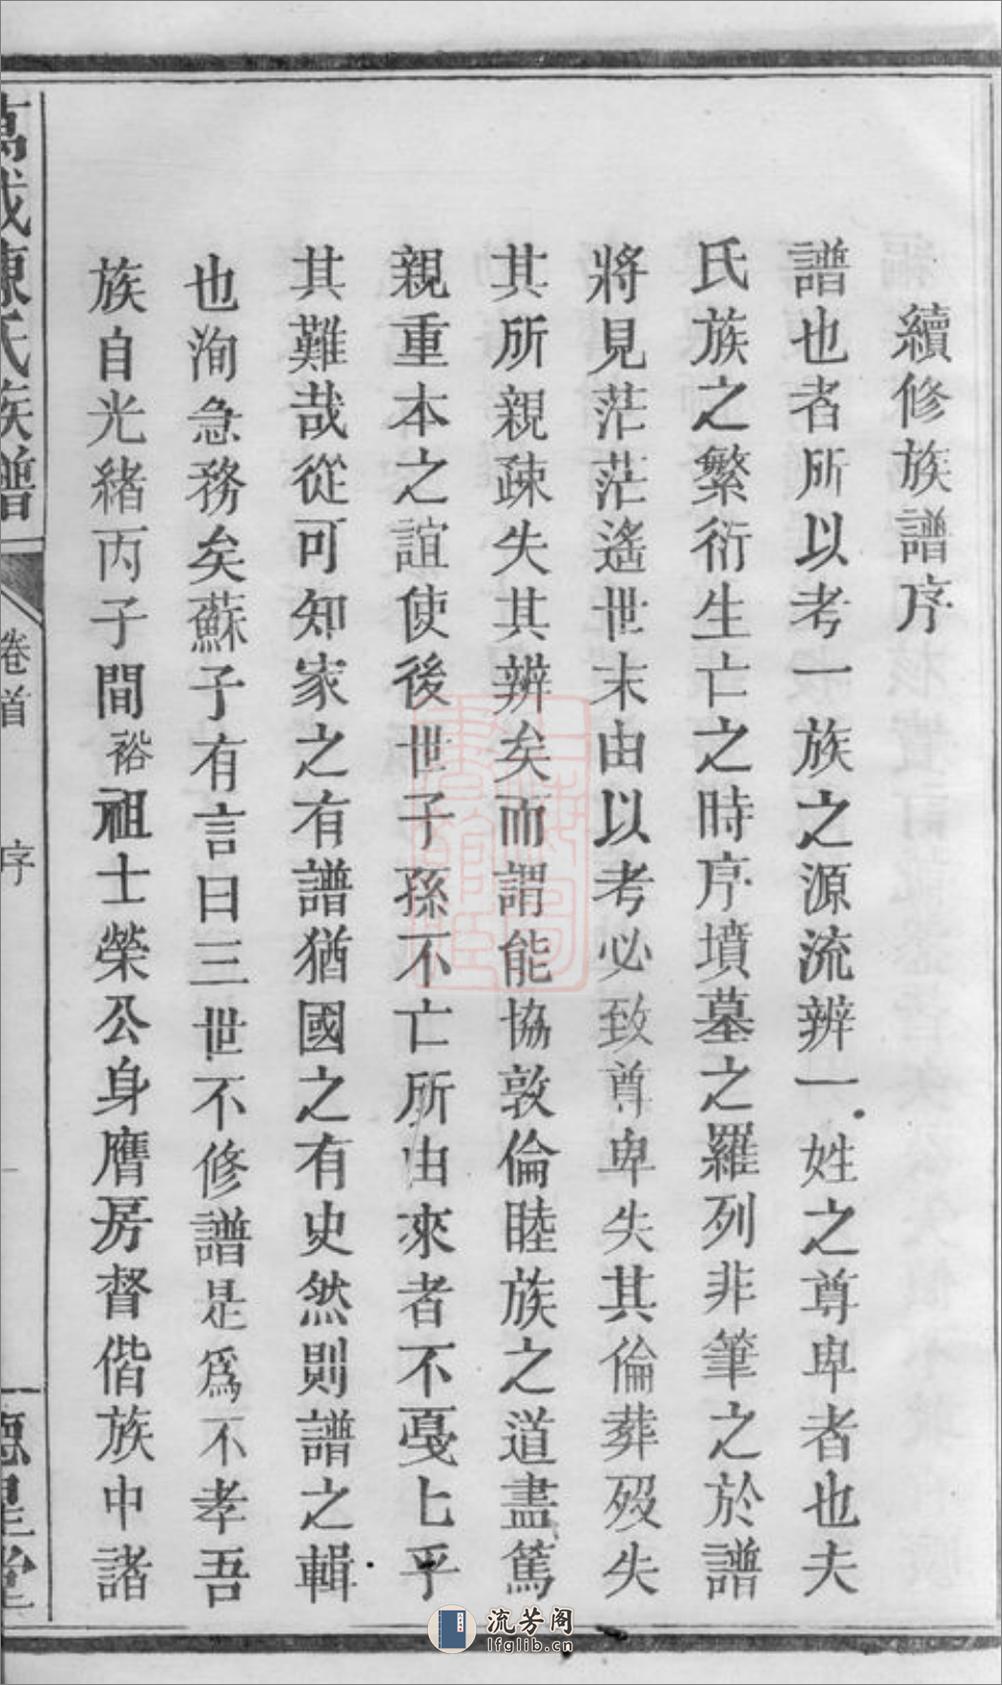 續修族譜序
譜也者所以考一族之源流辨一姓之尊卑者也夫
氏族之繁衍生亡之時序墳墓之羅列非筆之於譜
將見茫茫遙世末由以考必致尊卑失其倫葬歿失
其所親疎失其辨矣而謂能協敦倫睦族之道盡篤
親重本之誼使後世子孫不亡所由來者不戞乜乎
其難哉從可知家之有譜猶國之有史然則譜之輯
也洵急務矣蘇子有言曰三世不修譜是爲不孝吾
族自光緒丙子間裕祖士榮公身膺房督偕族中諸
萬載陳氏族譜 卷首 序 一 德星堂
流芳阁
lfglib.cn